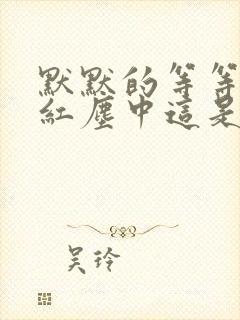 默默的等等
紅塵中這是
吴玲